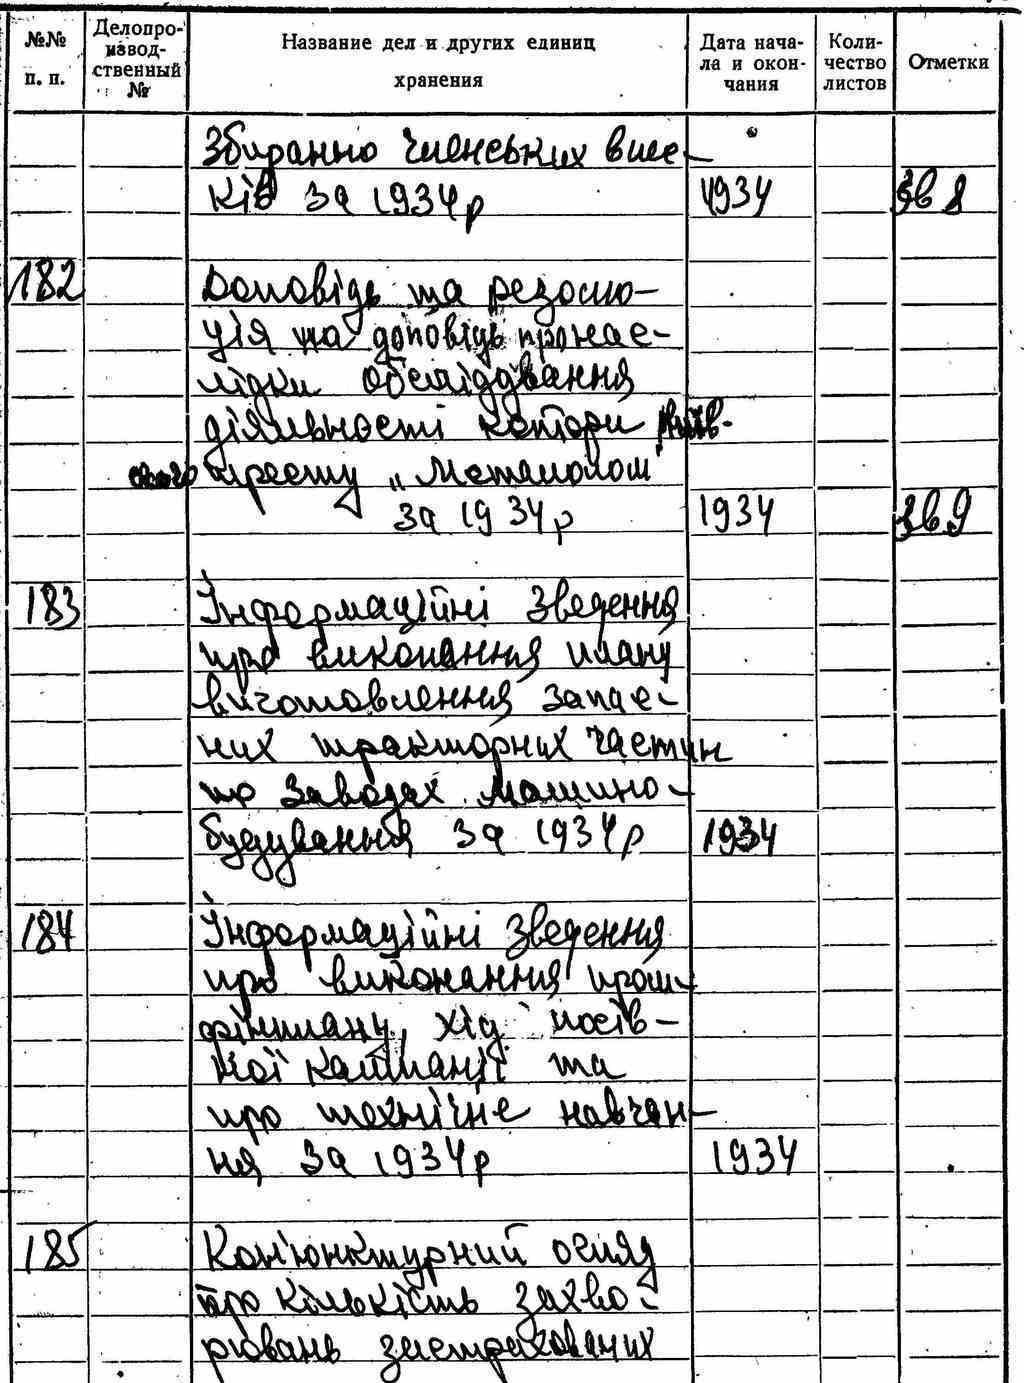 №№ п. п.
Делопро-
извод-
ственный
№
Название дел и других единиц
хранения
Дата нача-
ла и окон-
чания
Коли-
чество
листов
Отметки
Збиранню членських внес-
ків за 1934р 1934 зв 8
182 Доповідь та резолю-
ція на доповідь про нас-
лідки обслідування
діяльності контори Київ-
ського тресту „Металолом"
за 1934р 1934 зв. 9
183 Інформаційні зведення
про виконання плану
виготовлення запас-
них тракторних частин
по заводах машино-
будування за 1934р 1934
184 Інформаційні зведення
про виконання пром-
фінплану, хід посів-
ної кампанії та
про технічне навчан-
ня за 1934р 1934
185 Кон'юнктурний огляд
про кількість захво-
рювань застрахованих